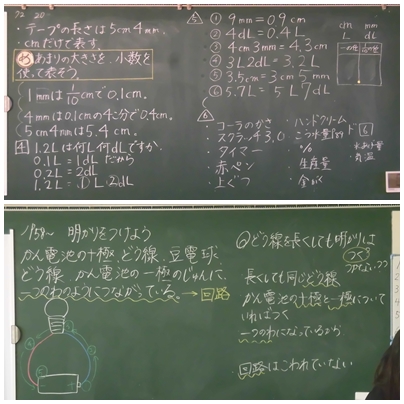 ・テープの長さは5cm4mm.
・cmだけで表す。
め あまりの大きさを、小数を
使って表そう。
1mmは1/10cmで0.1cm.
4mmは0.1cmの4こ分で0.4cm.
5cm4mmは5.4cm.
4 1.2Lは何L何dLですか。
0.1L=1dLだから
0.2L=2dL
1.2L=1L2dL
5
① 9mm=0.9cm
② 4dL=0.4L
③ 4cm3mm=4.3cm
④ 3L2dL=3.2L
⑤ 3.5cm=3cm5mm
⑥ 5.7L=5L7dL
cm mm
L dL
6
・コーラのかさ
・タイマー
・赤ペン
・上ぐつ
・ハンドクリーム
・%
・生産量
・気温
明かりをつけよう
かん電池の+極、どう線、豆電球、
どう線、かん電池の-極のじゅんに、
一つのわのようにつながっている。→回路
どう線を長くしても明かりは
つく
長くても同じどう線
かん電池の+極と-極について
いればつく
一つのわになっているから
回路はこわれていない